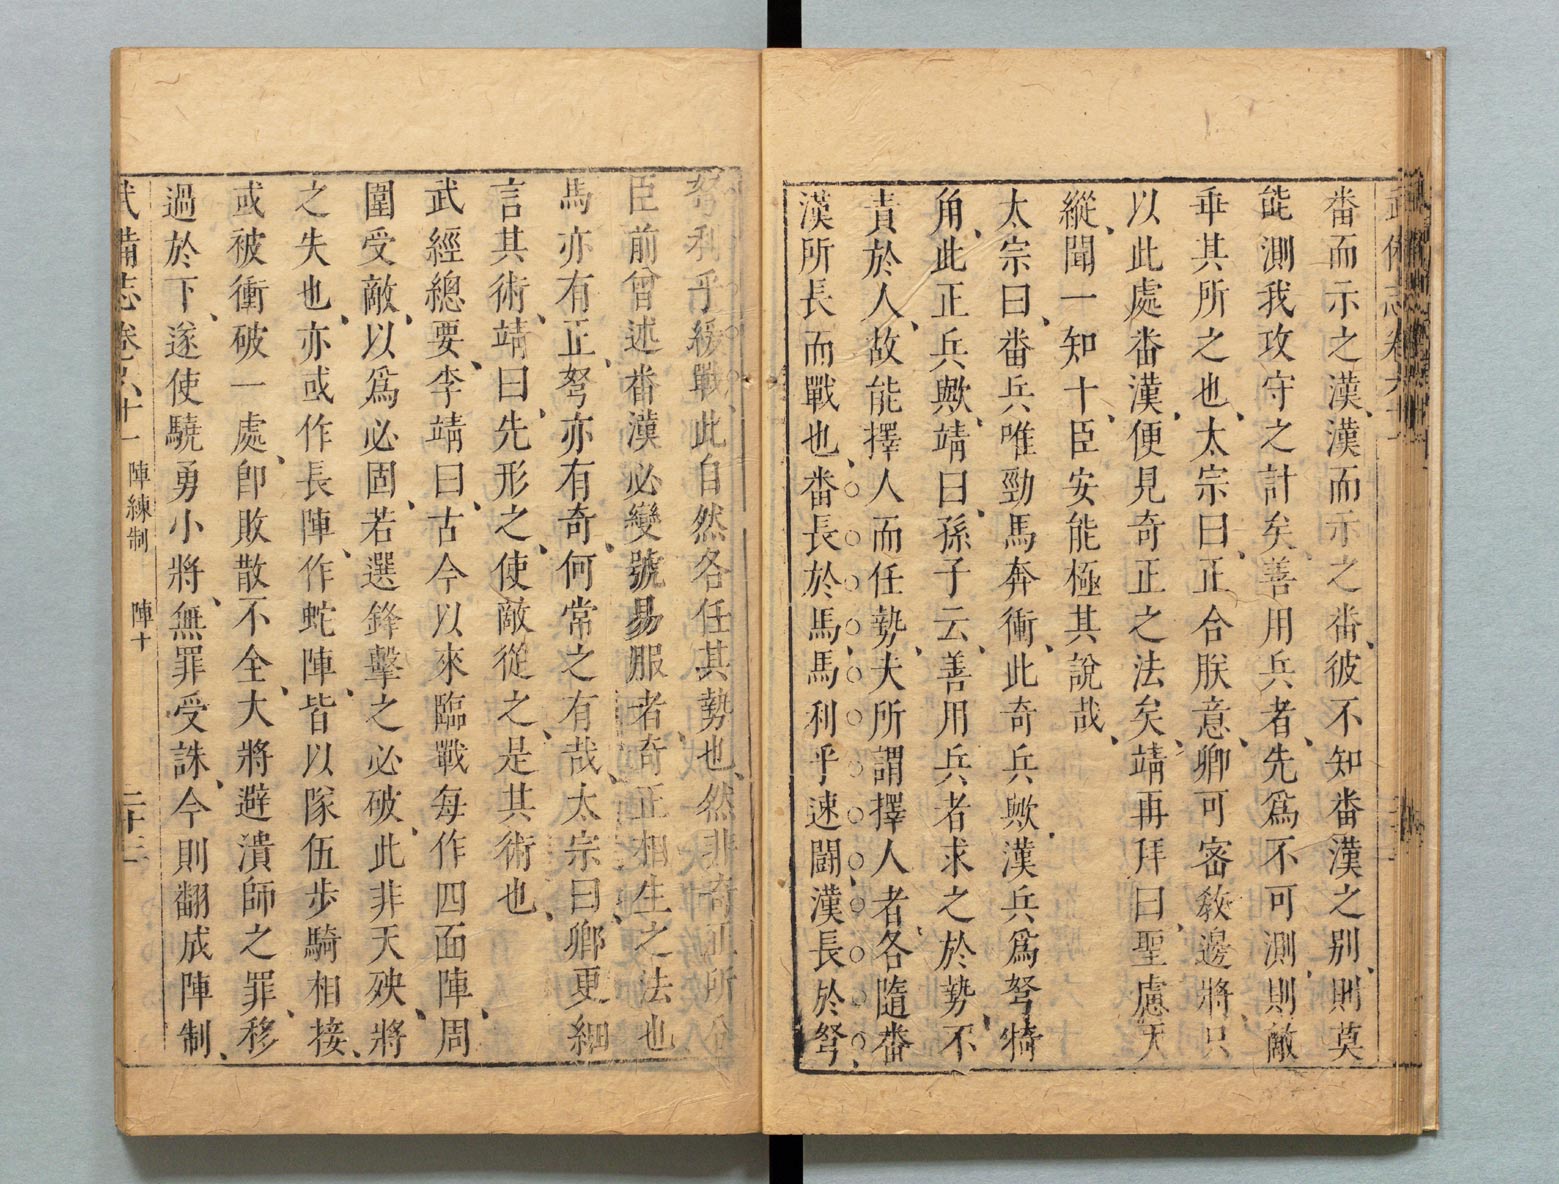 番而示之漢、漢而示之番、彼不知番漢之别、則莫
能測我攻守之計矣、善用兵者、先爲不可測、則敵
乖其所之也、太宗曰、正合朕意、卿可密敎邊將、只
以此處番漢、便見奇正之法矣、靖再拜曰、聖慮天
縱、聞一知十、臣安能極其說哉、
太宗曰、番兵唯勁馬奔衝、此奇兵歟、漢兵爲弩犄
角、此正兵歟、靖曰、孫子云、善用兵者求之於勢、不
責於人、故能擇人而任勢、夫所謂擇人者、各隨番
漢所長而戰也、番長於馬、馬利乎速鬪、漢長於弩、
弩利乎緩戰、此自然各任其勢也、然非奇正所分
臣前曾述番漢必變號易服者、奇正相生之法也
馬亦有正、弩亦有奇、何常之有哉、太宗曰、卿更細
言其術、靖曰、先形之、使敵從之、是其術也、
武經總要、李靖曰、古今以來臨戰每作四面陣、周
圍受敵、以爲必固、若選鋒擊之必破、此非天殃、將
之失也、亦或作長陣、作蛇陣、皆以隊伍步騎相接、
或被衝破一處、卽敗散不全、大將避潰師之罪、移
過於下、遂使驍勇小將、無罪受誅、今則翻成陣制、
武備志卷 十一 陣練制 陣十 二十三